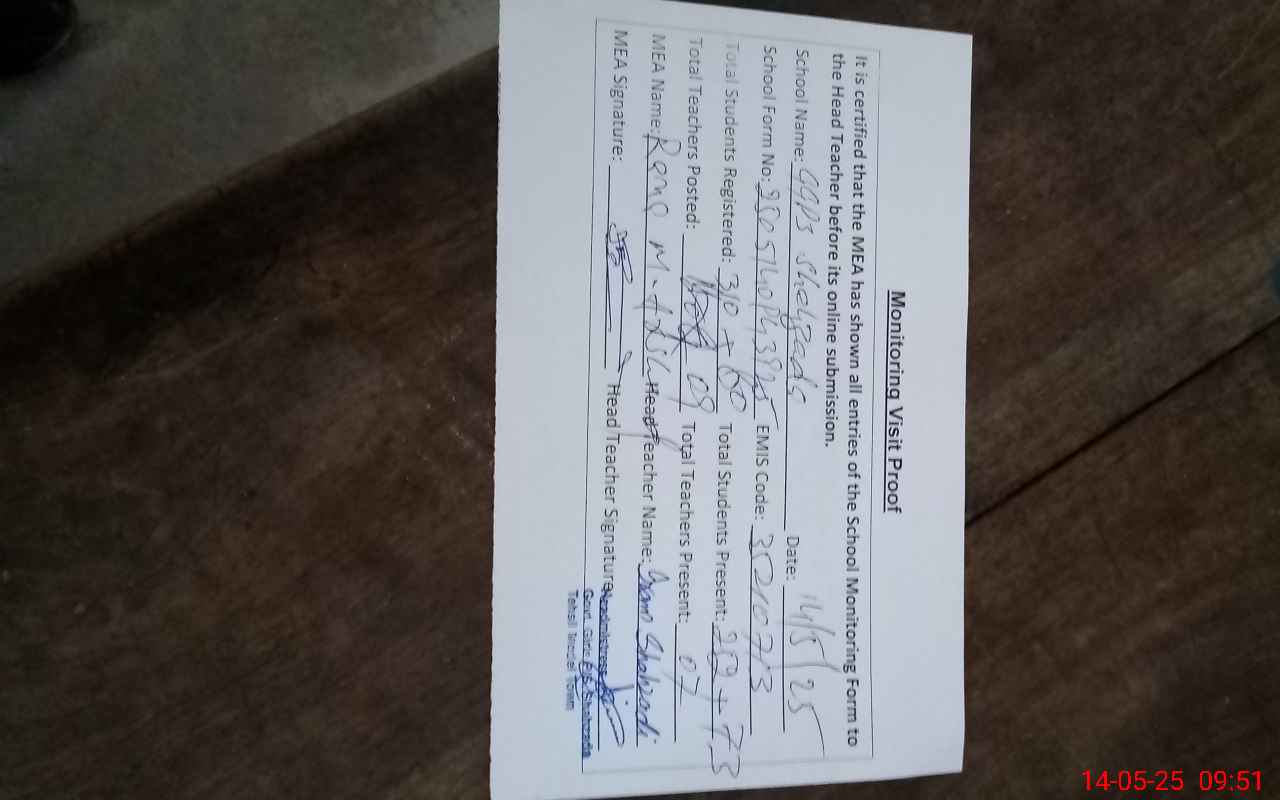 Monitoring Visit Proof
It is certified that the MEA has shown all entries of the School Monitoring Form to
the Head Teacher before its online submission.
School Name: GGPS Shahzada Date: 14/5/25
School Form No: EMIS Code: 35210713
Total Students Registered: 310 + 80 Total Students Present: 252 + 73
Total Teachers Posted: 09 Total Teachers Present: 07
MEA Name: Rana M. Head Teacher Name: Shahzadi
MEA Signature: Head Teacher Signature:
Headmistress
Govt. Girls P/S Shahzada
Tehsil Model Town
14-05-25 09:51